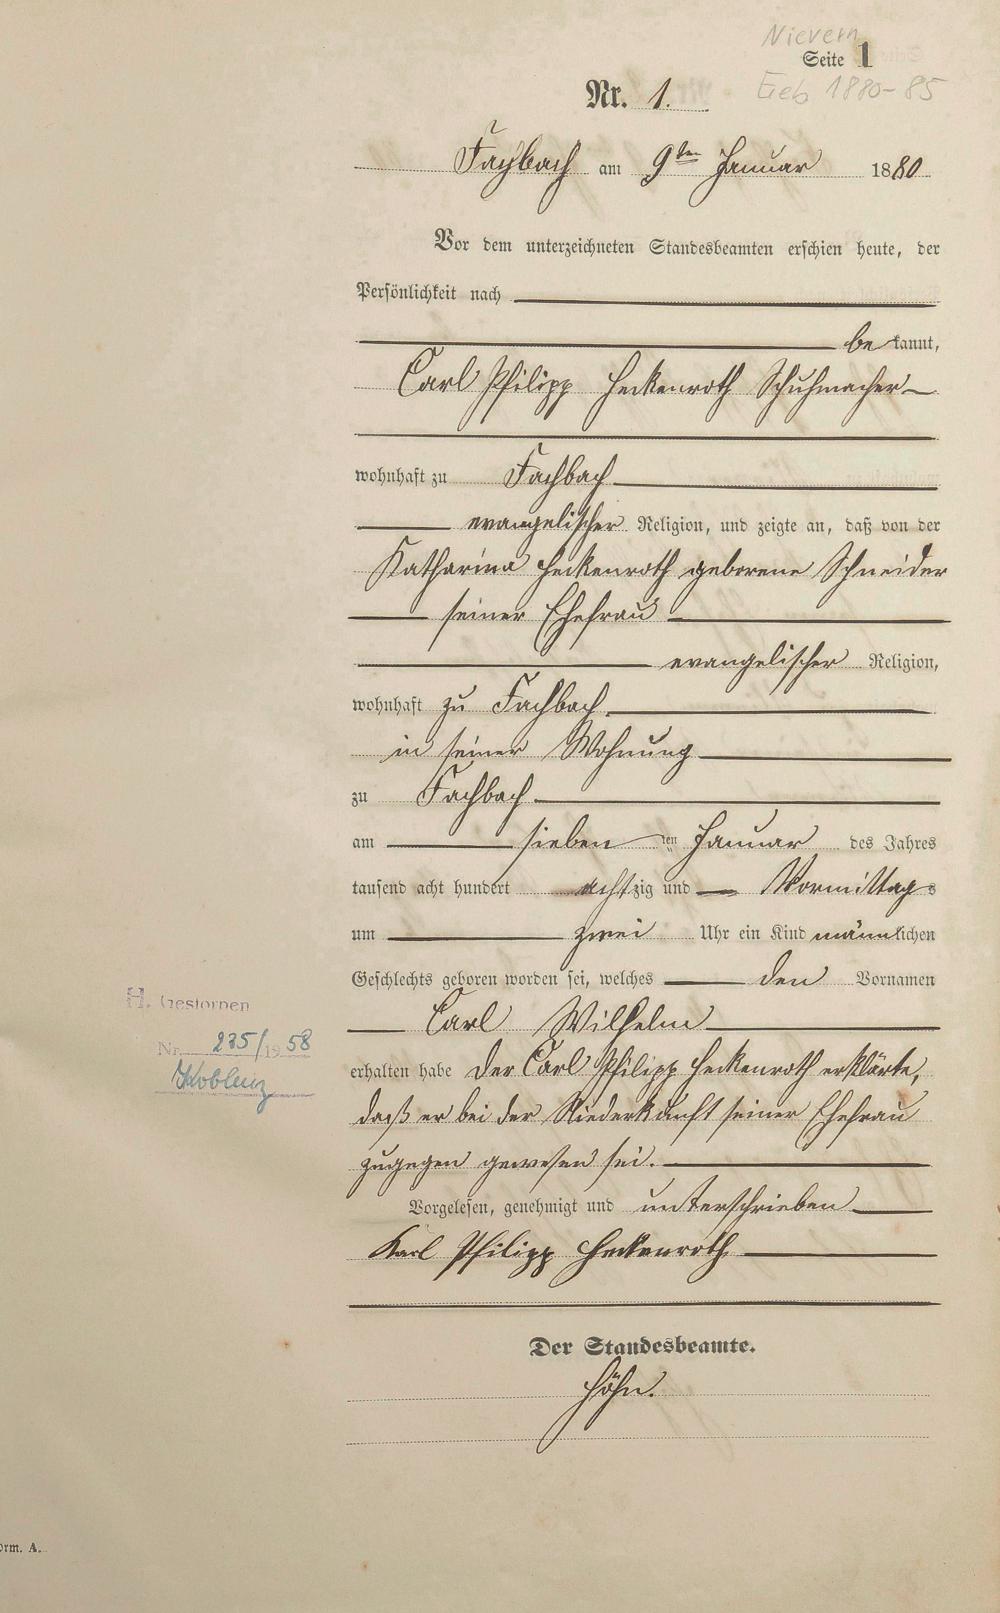 Nievern
Seite 1
Geb 1880-85
Nr. 1.
Fachbach am 9ten Januar 1880
Vor dem unterzeichneten Standesbeamten erschien heute, der
Persönlichkeit nach
bekannt,
Carl Philipp Heckenroth Schuhmacher
wohnhaft zu Fachbach
evangelischer Religion, und zeigte an, daß von der
Katharina Heckenroth geborene Schneider
seiner Ehefrau
evangelischer Religion,
wohnhaft zu Fachbach
in seiner Wohnung
zu Fachbach
am siebenten Januar des Jahres
tausend acht hundert achtzig und Vormittags
um zwei Uhr ein Kind männlichen
Geschlechts geboren worden sei, welches den Vornamen
Carl Wilhelm
erhalten habe Der Carl Philipp Heckenroth erklärte,
daß er bei der Niederkunft seiner Ehefrau
zugegen gewesen sei.
Vorgelesen, genehmigt und unterschrieben
Karl Philipp Heckenroth
Der Standesbeamte.
Höhn.
H. Gestorben
Nr. 235/1958
Koblenz
orm. A.